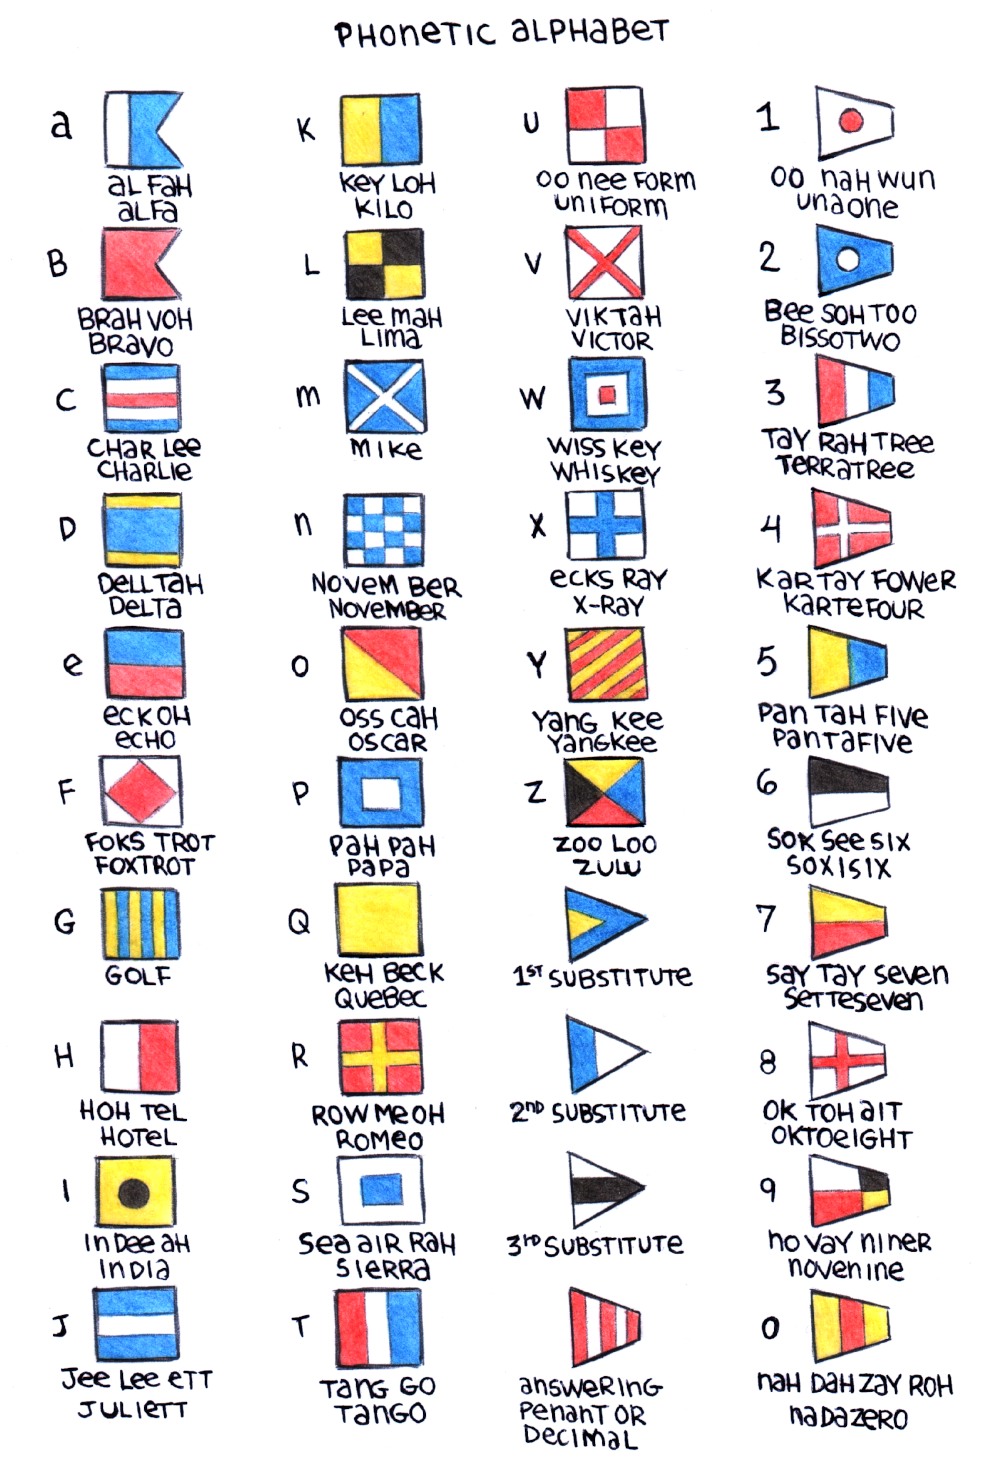 PHONETIC ALPHABET
A
AL FAH
ALFA
B
BRAH VOH
BRAVO
C
CHAR LEE
CHARLIE
D
DELL TAH
DELTA
E
ECK OH
ECHO
F
FOKS TROT
FOXTROT
G
GOLF
H
HOH TEL
HOTEL
I
IN DEE AH
INDIA
J
JEE LEE ETT
JULIETT
K
KEY LOH
KILO
L
LEE MAH
LIMA
M
MIKE
N
NOVEM BER
NOVEMBER
O
OSS CAH
OSCAR
P
PAH PAH
PAPA
Q
KEH BECK
QUEBEC
R
ROW ME OH
ROMEO
S
SEA AIR RAH
SIERRA
T
TANG GO
TANGO
U
OO NEE FORM
UNIFORM
V
VIK TAH
VICTOR
W
WISS KEY
WHISKEY
X
ECKS RAY
X-RAY
Y
YANG KEE
YANGKEE
Z
ZOO LOO
ZULU
1ST SUBSTITUTE
2ND SUBSTITUTE
3RD SUBSTITUTE
ANSWERING
PENANT OR
DECIMAL
1
OO NAH WUN
UNAONE
2
BEE SOH TOO
BISSOTWO
3
TAY RAH TREE
TERRATREE
4
KAR TAY FOWER
KARTEFOUR
5
PAN TAH FIVE
PANTAFIVE
6
SOK SEE SIX
SOXISIX
7
SAY TAY SEVEN
SETTESEVEN
8
OK TOH AIT
OKTOEIGHT
9
NO VAY NINER
NOVENINE
0
NAH DAH ZAY ROH
NADAZERO